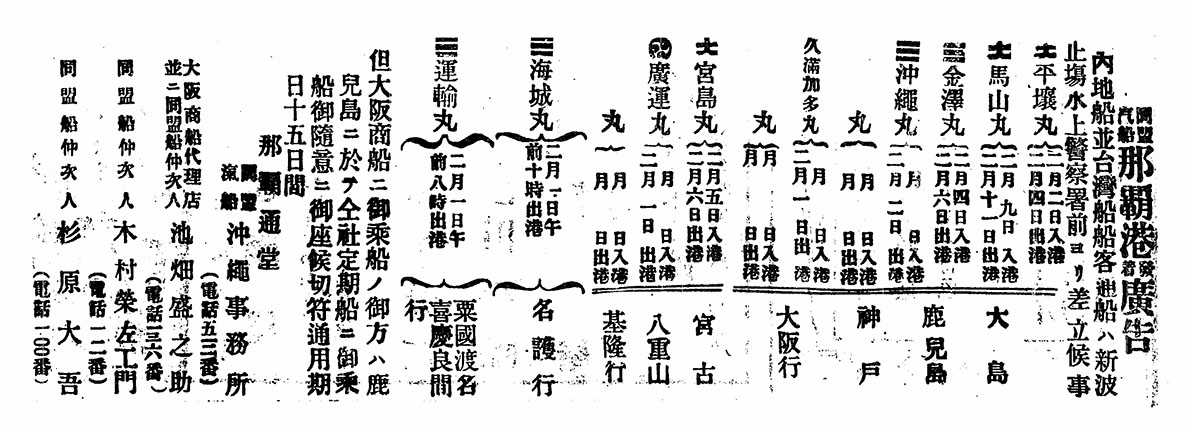 同盟汽船 那覇港 發着 廣告
內地船並台灣船船客通船ハ新波
止場水上警察署前ヨリ差立候事
平壤丸 二月二日入港 二月四日出港
馬山丸 二月九日入港 二月十一日出港
大島
金澤丸 二月四日入港 二月六日出港
鹿兒島
沖繩丸 月日入港 二月二日出港
丸 月日入港 月日出港
神戶
久滿加多丸 月日入港 二月一日出港
丸 月日入港 月日出港
大阪行
宮島丸 二月五日入港 二月六日出港
宮古
廣運丸 月日入港 二月一日出港
八重山
丸 月日入港 月日出港
基隆行
海城丸 二月一日午前十時出港
名護行
運輸丸 二月一日午前八時出港
粟國渡名喜慶良間行
但大阪商船ニ御乘船ノ御方ハ鹿
兒島ニ於テ仝社定期船ニ御乘
船御隨意ニ御座候切符通用期
日十五日間
那覇通堂
同盟汽船 沖繩事務所
(電話五三番)
大阪商船代理店並ニ同盟船仲次人 池畑盛之助
(電話三六番)
同盟船仲次人 木村榮左工門
(電話一二番)
同盟船仲次人 杉原大吾
(電話一〇〇番)